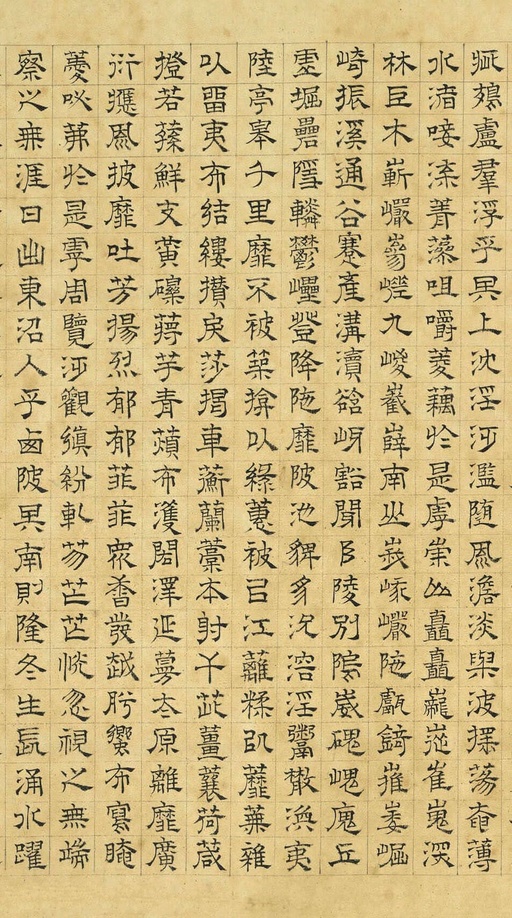 疵鵁盧羣浮乎其上沈淫汎濫随風澹淡與波揺蕩奄薄
水渚唼喋菁藻咀嚼菱藕於是虖崇山矗矗巃嵸崔嵬深
林巨木嶄巖嵾嵯九嵕嶻嶭南山峩峨巖陁甗錡嶊崣崛
崎振溪通谷蹇產溝瀆谽呀豁閜阜陵別隝崴磈嵔廆丘
虛堀礨隱轔鬱㠥登降陁靡陂池貏豸沇溶淫鬻散渙夷
陸亭皋千里靡不被築揜以綠蕙被以江蘺糅以蘪蕪雜
以留夷布結縷攢戾莎揭車蘅蘭槀本射干茈薑蘘荷葴
橙若蓀鮮支黃礫蔣芧青薠布濩閎澤延蔓太原離靡廣
衍應風披靡吐芳揚烈郁郁菲菲眾香發越肸蠁布寫晻
薆咇茀於是虖周覽汎觀縝紛軋芴芒芒恍忽視之無端
察之無涯日出東沼入乎西陂其南則隆冬生長涌水躍